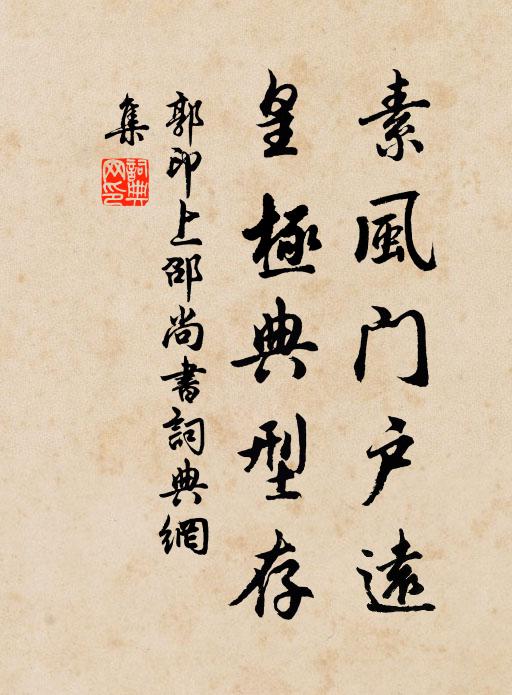 素風門户遠
皇極典型存
郭印上邵尚書詞典網
集
詞典網印